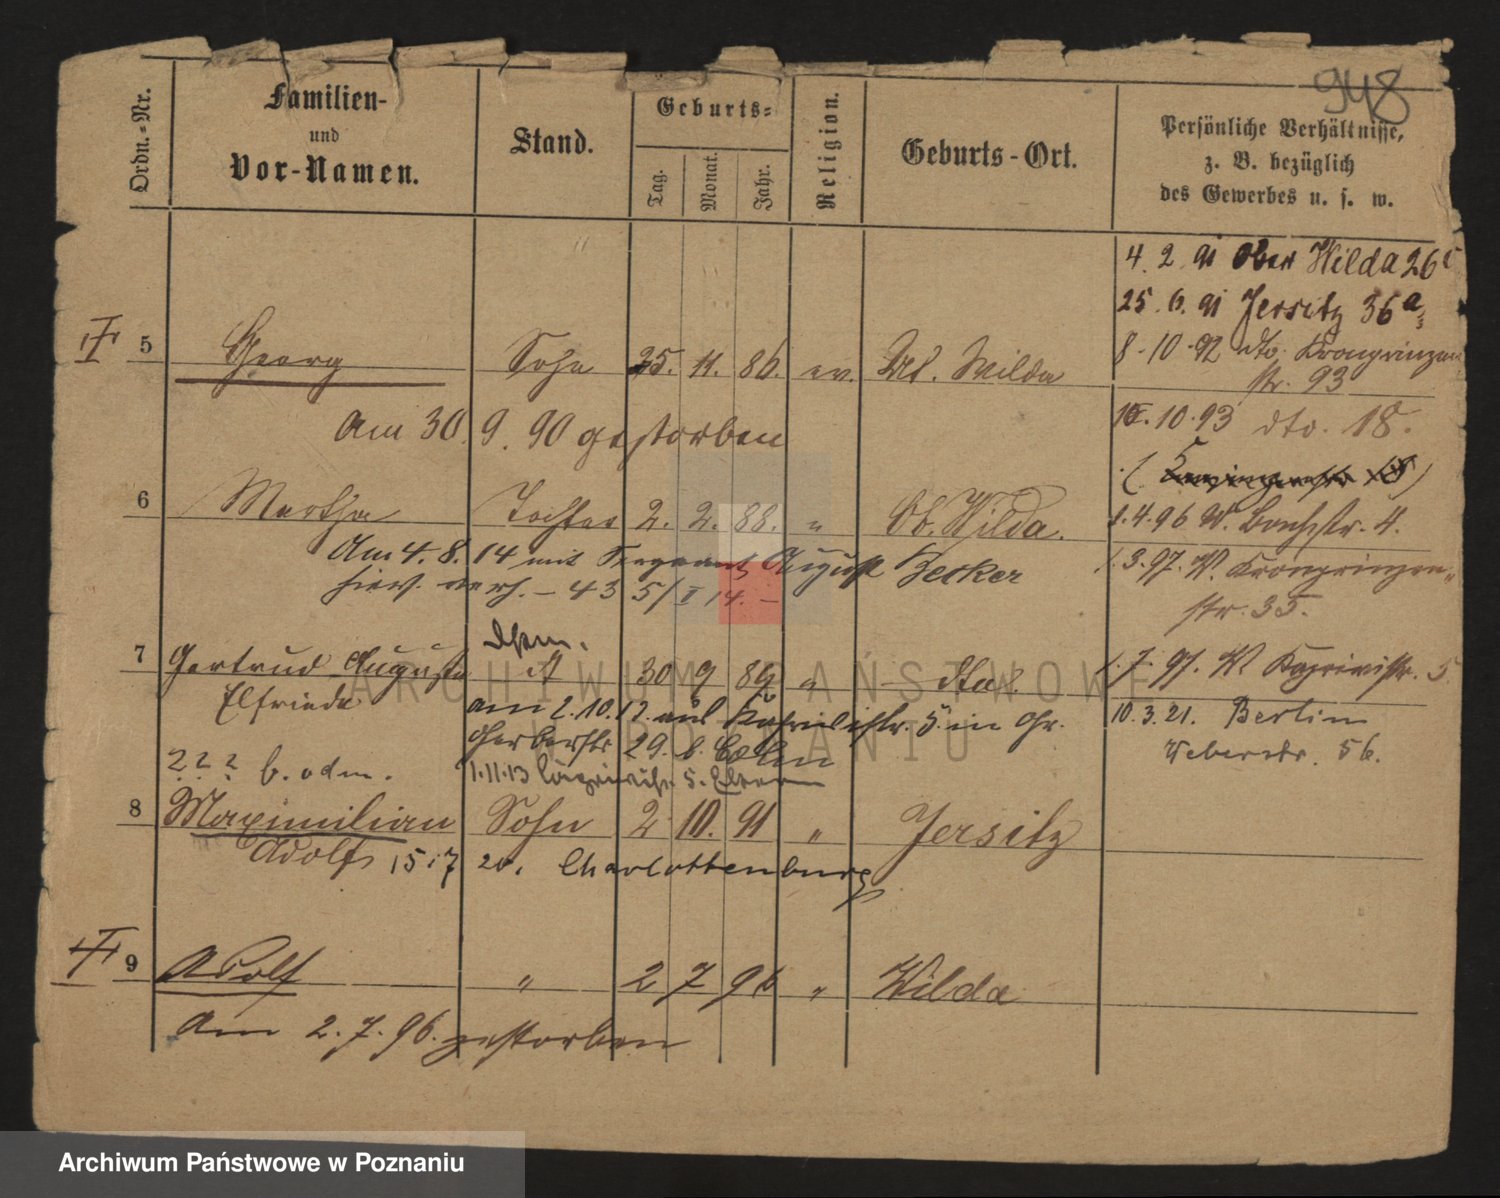 948
Ordn.-Nr.
Familien-
und
Vor-Namen.
Stand.
Geburts-
Tag.
Monat.
Jahr.
Religion.
Geburts-Ort.
Persönliche Verhältnisse,
z. B. bezüglich
des Gewerbes u. s. w.
4. 2. 91 Ober Wilda 26
25. 6. 91 Jersitz 36a
5 Georg Sohn 25. 11. 86. ev. Wilda
8. 10. 92 dto. Kronprinzen
str. 93
Am 30. 9. 90 gestorben
10. 93 dto. 18.
6 Martha Tochter 2. 2. 88. " Ob. Wilda.
1. 4. 96 W. 4.
Am 4. 8. 14 mit Sergeant August Becker
1. 3. 97. W. Kronprinzen-
str. 35.
hier. verh. – 43 5/II 14. –
7 Gertrud Auguste 30 9 89 "
Elfriede
1. 7. 97. W 5.
am 2. 10. 12. aus 5. in Gr.
10. 3. 21. Berlin
Weberstr. 56.
29. b.
? ? ? b. odm.
1. 11. 13 5. Eltern
8 Maximilian Sohn 2 10. 91 " Jersitz
Adolf 15 17 20. Charlottenburg
9 Adolf " 2 7 96 " Wilda
Am 2. 7. 96. gestorben
ARCHIWUM PAŃSTWOWE
W POZNANIU
Archiwum Państwowe w Poznaniu